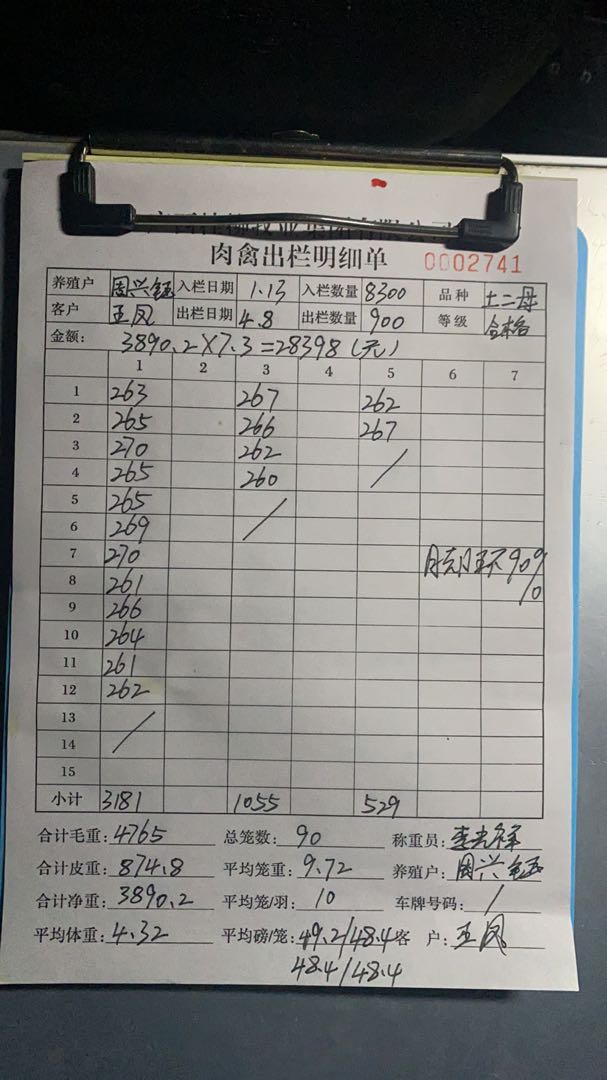 肉禽出栏明细单 0002741
养殖户 周兴钰 入栏日期 1.13 入栏数量 8300 品种 土二母
客户 王凤 出栏日期 4.8 出栏数量 900 等级 合格
金额: 3890.2×7.3=28398(元)
1 2 3 4 5 6 7
1 263 267 262
2 265 266 267
3 270 262 /
4 265 260
5 265 /
6 269
7 270 90%
8 261 10
9 266
10 264
11 261
12 262
13 /
14
15
小计 3181 1055 529
合计毛重: 4765 总笼数: 90 称重员:
合计皮重: 874.8 平均笼重: 9.72 养殖户: 周兴钰
合计净重: 3890.2 平均笼/羽: 10 车牌号码: /
平均体重: 4.32 平均磅/笼: 49.2/48.4 客 户: 王凤
48.4/48.4